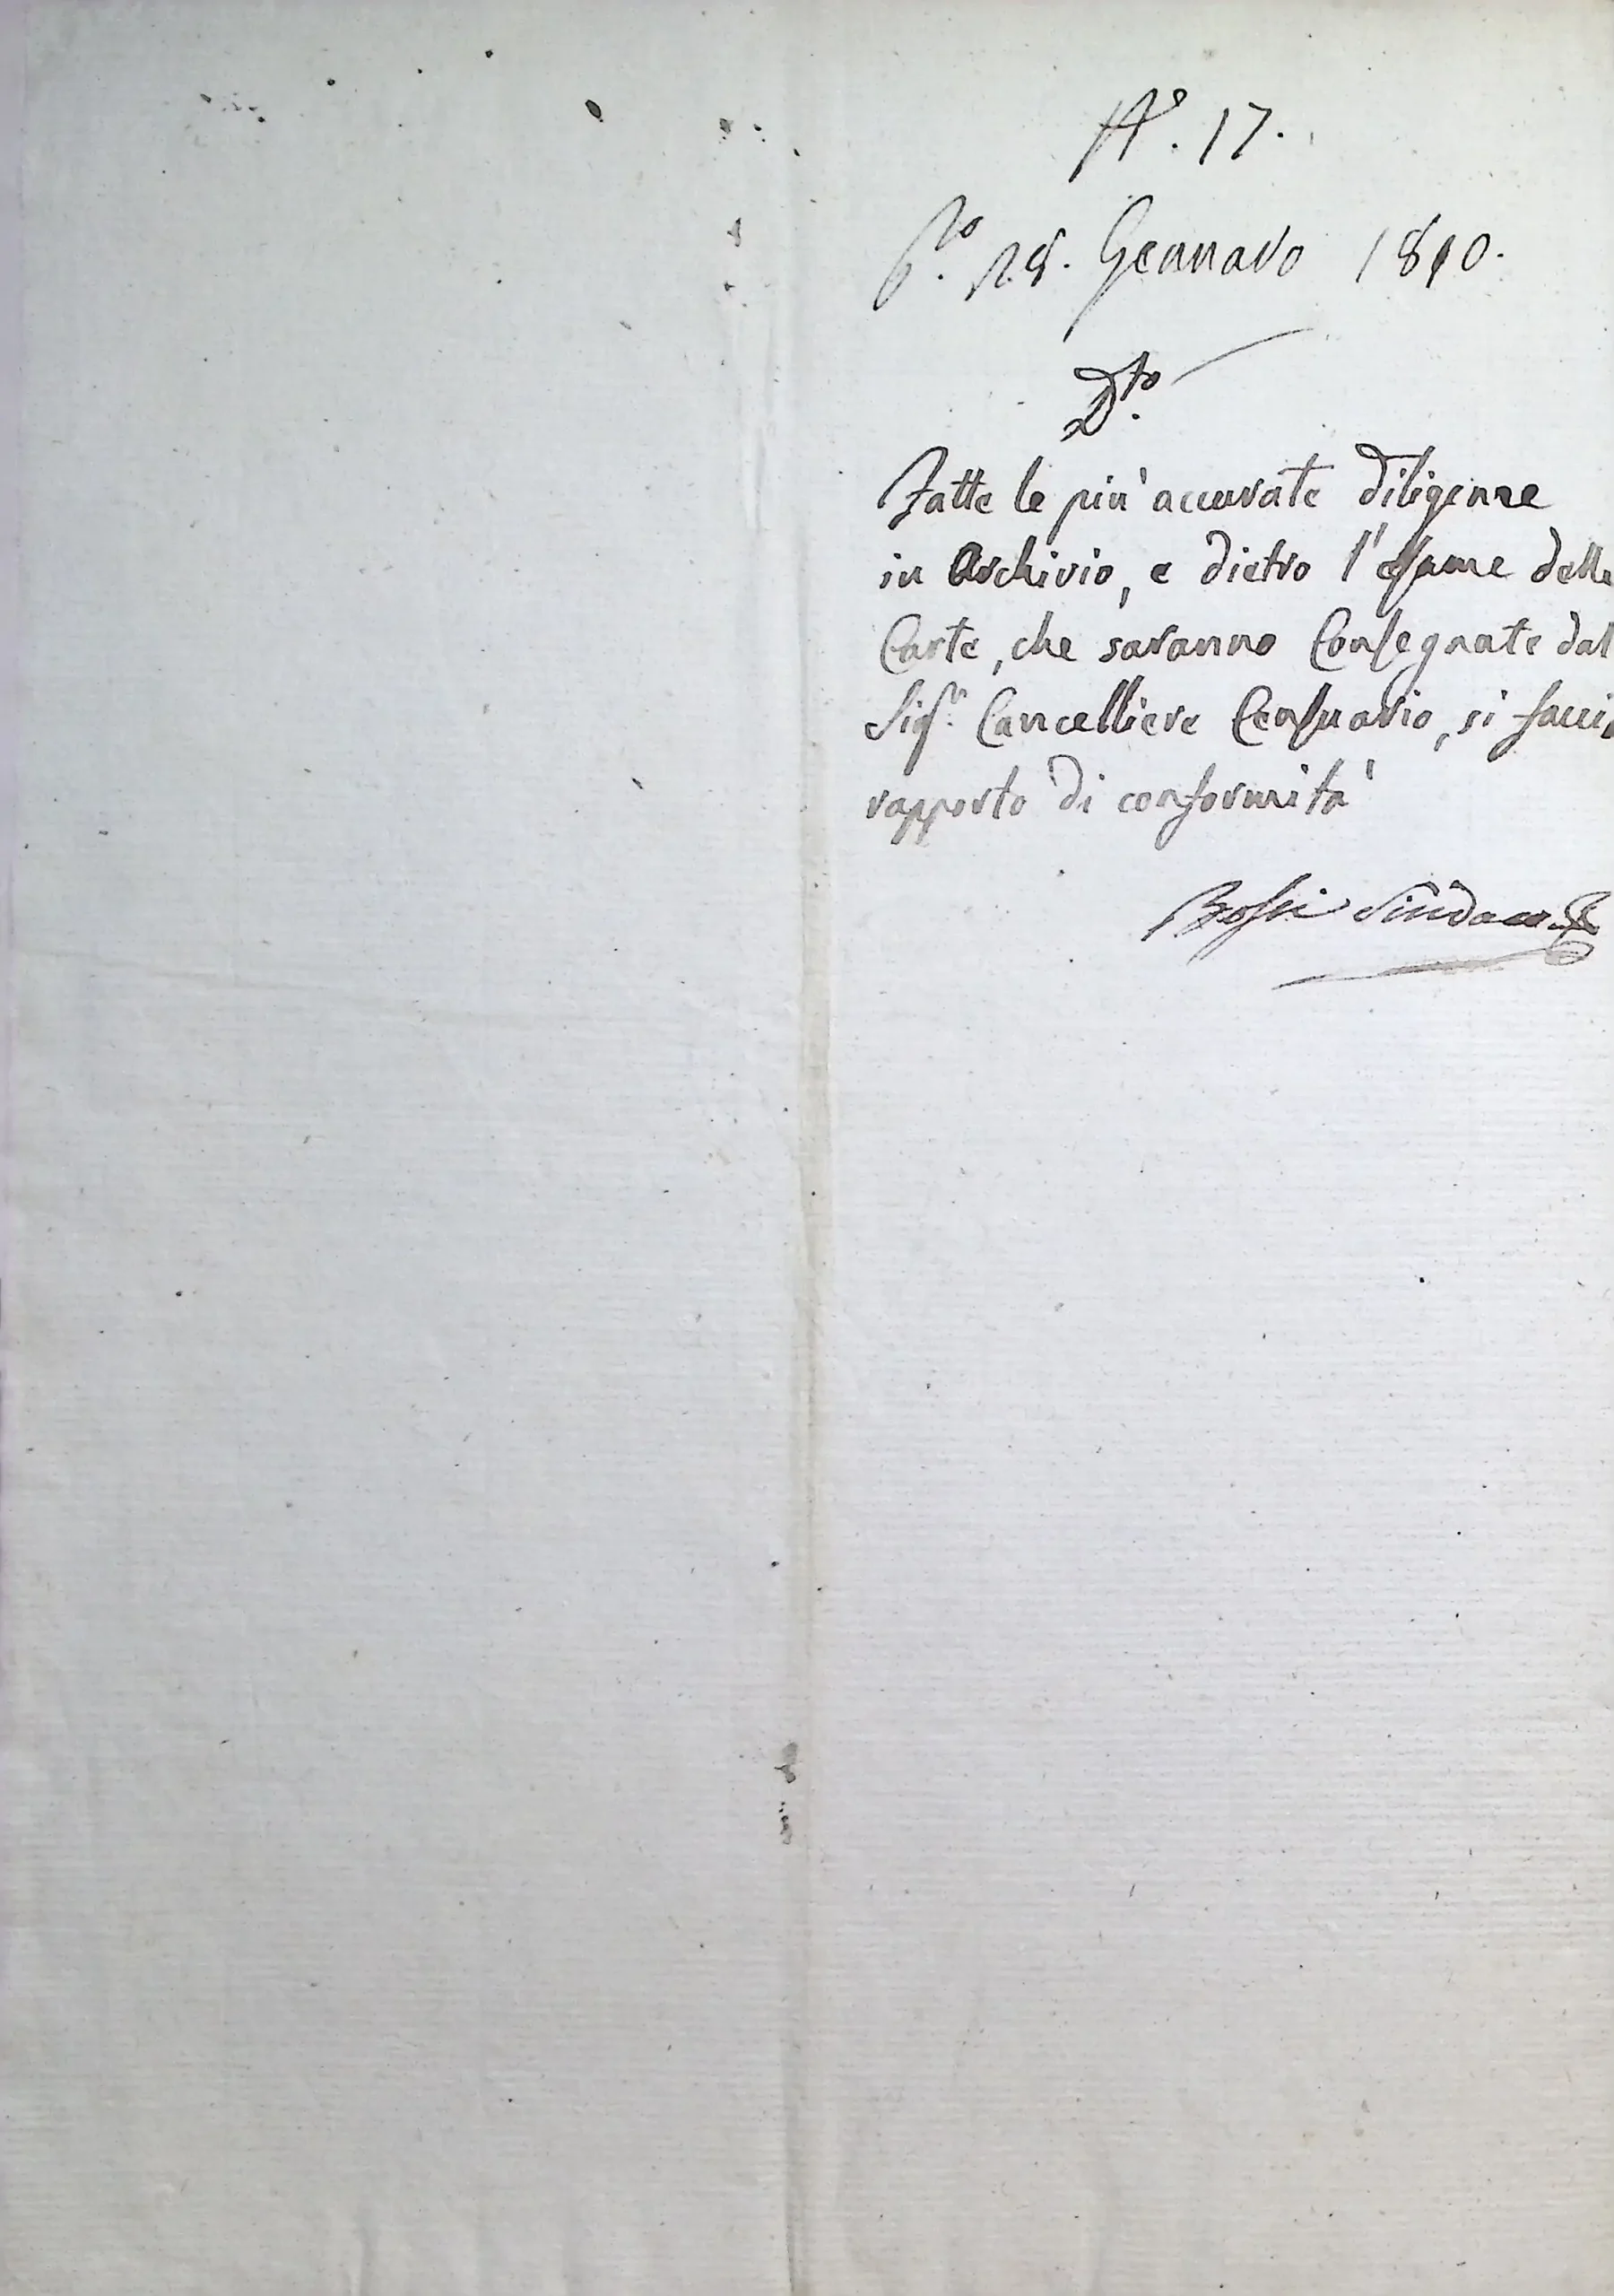 N.º 17.
P.to 28. Gennaro 1810.
D.to
Fatte le più accurate diligenze
in Archivio, e dietro l'esame delle
Carte, che saranno Consegnate dal
Sigr. Cancelliere Censuario, si faccia
rapporto di conformità
Sindaco